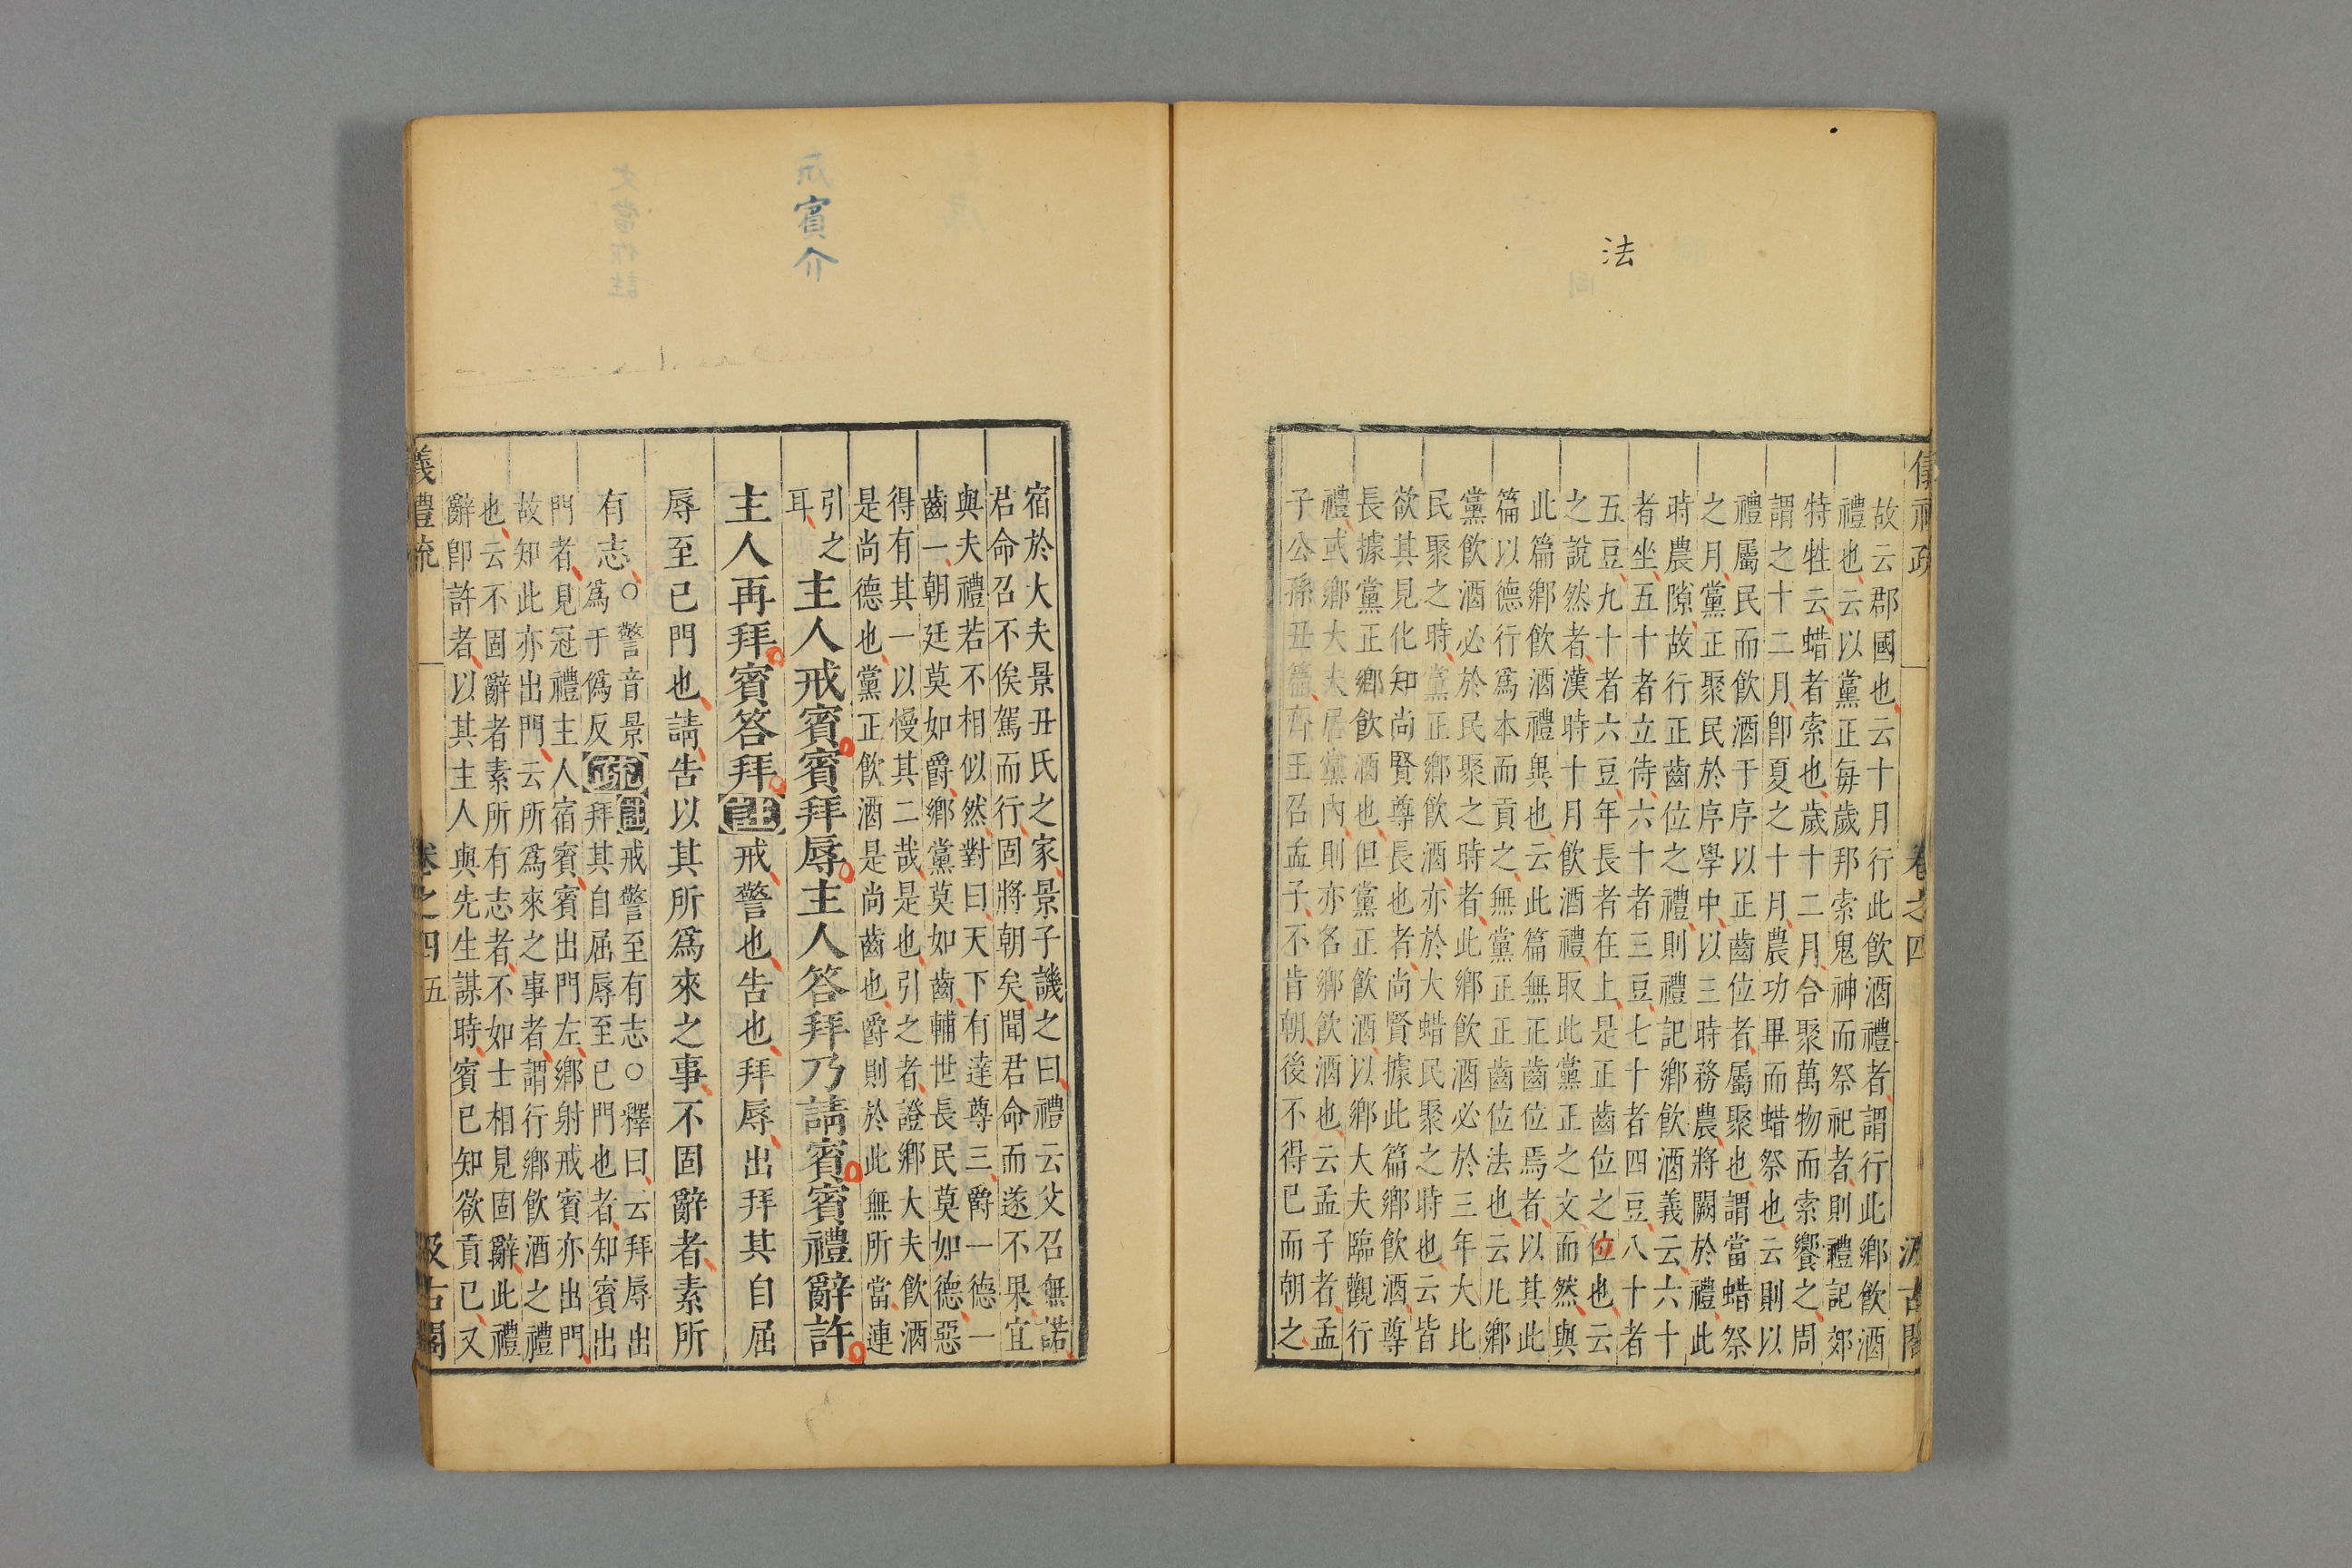 法
儀禮疏 卷之四 汲古閣
故云郡國也云十月行此飲酒禮者謂行此鄉飲酒
禮也云以黨正每歲邦索鬼神而祭祀者則禮記郊
特牲云蜡者索也歲十二月合聚萬物而索饗之周
謂之十二月卽夏之十月農功畢而蜡祭也云則以
禮屬民而飲酒于序以正齒位者屬聚也謂當蜡祭
之月黨正聚民於序學中以三時務農將闕於禮此
時農隙故行正齒位之禮則禮記鄉飲酒義云六十
者坐五十者立侍六十者三豆七十者四豆八十者
五豆九十者六豆年長者在上是正齒位之位也云
之說然者漢時十月飲酒禮取此黨正之文而然與
此篇鄉飲酒禮異也云此篇無正齒位焉者以其此
篇以德行爲本而貢之無黨正正齒位法也云凡鄉
黨飲酒必於民聚之時者此鄉飲酒必於三年大比
民聚之時黨正鄉飲酒亦於大蜡民聚之時也云皆
欲其見化知尚賢尊長也者尚賢據此篇鄉飲酒尊
長據黨正鄉飲酒也但黨正飲酒以鄉大夫臨觀行
禮或鄉大夫居黨內則亦名鄉飲酒也云孟子者孟
子公孫丑篇齊王召孟子不肯朝後不得已而朝之
賓介
宿於大夫景丑氏之家景子譏之曰禮云父召無諾
君命召不俟駕而行固將朝矣聞君命而遂不果宜
與夫禮若不相似然對曰天下有達尊三爵一德一
齒一朝廷莫如爵鄉黨莫如齒輔世長民莫如德惡
得有其一以慢其二哉是也引之者證鄉大夫飲酒
是尚德也黨正飲酒是尚齒也爵則於此無所當連
引之
耳
主人戒賓賓拜辱主人答拜乃請賓賓禮辭許
主人再拜賓答拜註戒警也告也拜辱出拜其自屈
辱至已門也請告以其所爲來之事不固辭者素所
有志
○警音景
爲于僞反
疏
註戒警至有志○釋曰云拜辱出
拜其自屈辱至已門也者知賓出
門者見冠禮主人宿賓賓出門左鄉射戒賓亦出門
故知此亦出門云所爲來之事者謂行鄉飲酒之禮
也云不固辭者素所有志者不如士相見固辭此禮
辭卽許者以其主人與先生謀時賓已知欲貢已又
義禮疏 卷之四 五 汲古閣